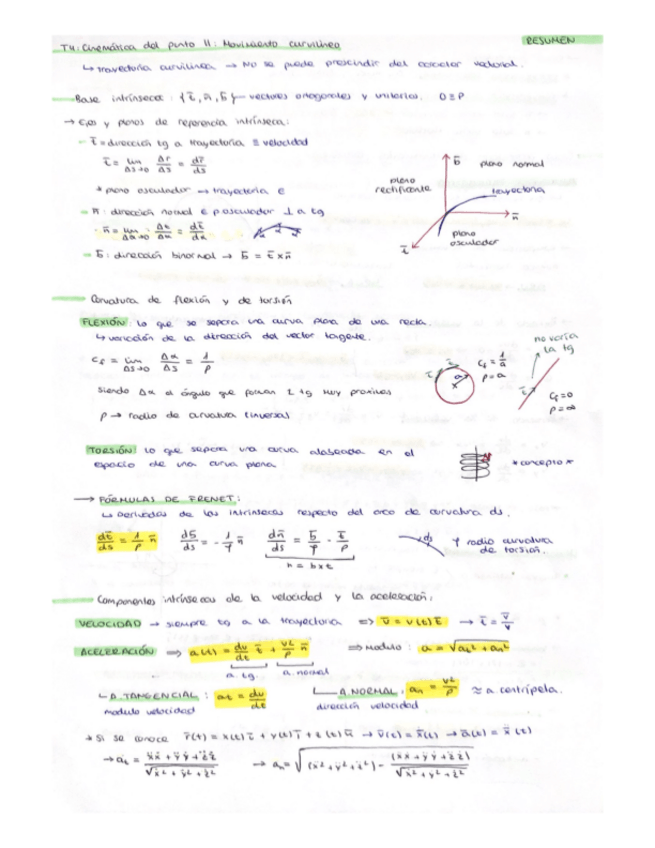 RESUMEN
T4: Cinemática del punto II: Movimiento curvilíneo
↳ trayectoria curvilínea → No se puede prescindir del caracter vectorial.
Base intrínseca: {t̄, n̄, b̄} vectores ortogonales y unitarios. O≡P
→ Ejes y planos de referencia intrínseca:
- t̄ = dirección tg a trayectoria ≡ velocidad
t̄ = lim Δs→0 Δr̄/Δs = dr̄/ds
* plano osculador → trayectoria ∈
- n̄: dirección normal ∈ p.osculador ⊥ a tg
n̄ = lim Δα→0 Δt̄/Δα = dt̄/dα
- b̄: dirección binormal → b̄ = t̄ × n̄
b̄
plano normal
plano rectificante
trayectoria
n̄
plano osculador
t̄
Curvatura de flexión y de torsión
FLEXIÓN: lo que se separa una curva plana de una recta.
↳ variación de la dirección del vector tangente.
Cf = lim Δs→0 Δα/Δs = 1/ρ
siendo Δα el ángulo que forman 2 tg muy próximas
ρ → radio de curvatura (inversa)
Cf = 1/a
ρ = a
no varía
la tg
Cf = 0
ρ = ∞
TORSIÓN: lo que separa una curva alabeada en el
espacio de una curva plana
* concepto *
→ FÓRMULAS DE FRENET:
↳ Derivadas de las intrínsecas respecto del arco de curvatura ds.
dt̄/ds = 1/ρ n̄ db̄/ds = - 1/φ n̄ dn̄/ds = b̄/φ - t̄/ρ
n = b×t
ds
φ radio curvatura
de torsión.
Componentes intrínsecas de la velocidad y la aceleración:
VELOCIDAD → siempre tg a la trayectoria ⇒ v̄ = v(t) t̄ → t̄ = v̄/v
ACELERACIÓN ⇒ a(t) = dv/dt t̄ + v²/ρ n̄ ⇒ Modulo: a = √at² + an²
a. tg. a. normal
↳ A. TANGENCIAL: at = dv/dt
modulo velocidad
A. NORMAL: an = v²/ρ ≈ a centrípeta.
dirección velocidad
→ Si se conoce r̄(t) = x(t) ī + y(t) j̄ + z(t) k̄ → v̄(t) = ẋ(t) → ā(t) = ẍ(t)
→ at = ẋẍ + ẏÿ + żz̈ / √ẋ² + ẏ² + ż² → an = √(ẍ² + ÿ² + z̈²) - (ẋẍ + ẏÿ + żz̈) / √ẋ² + ẏ² + ż²